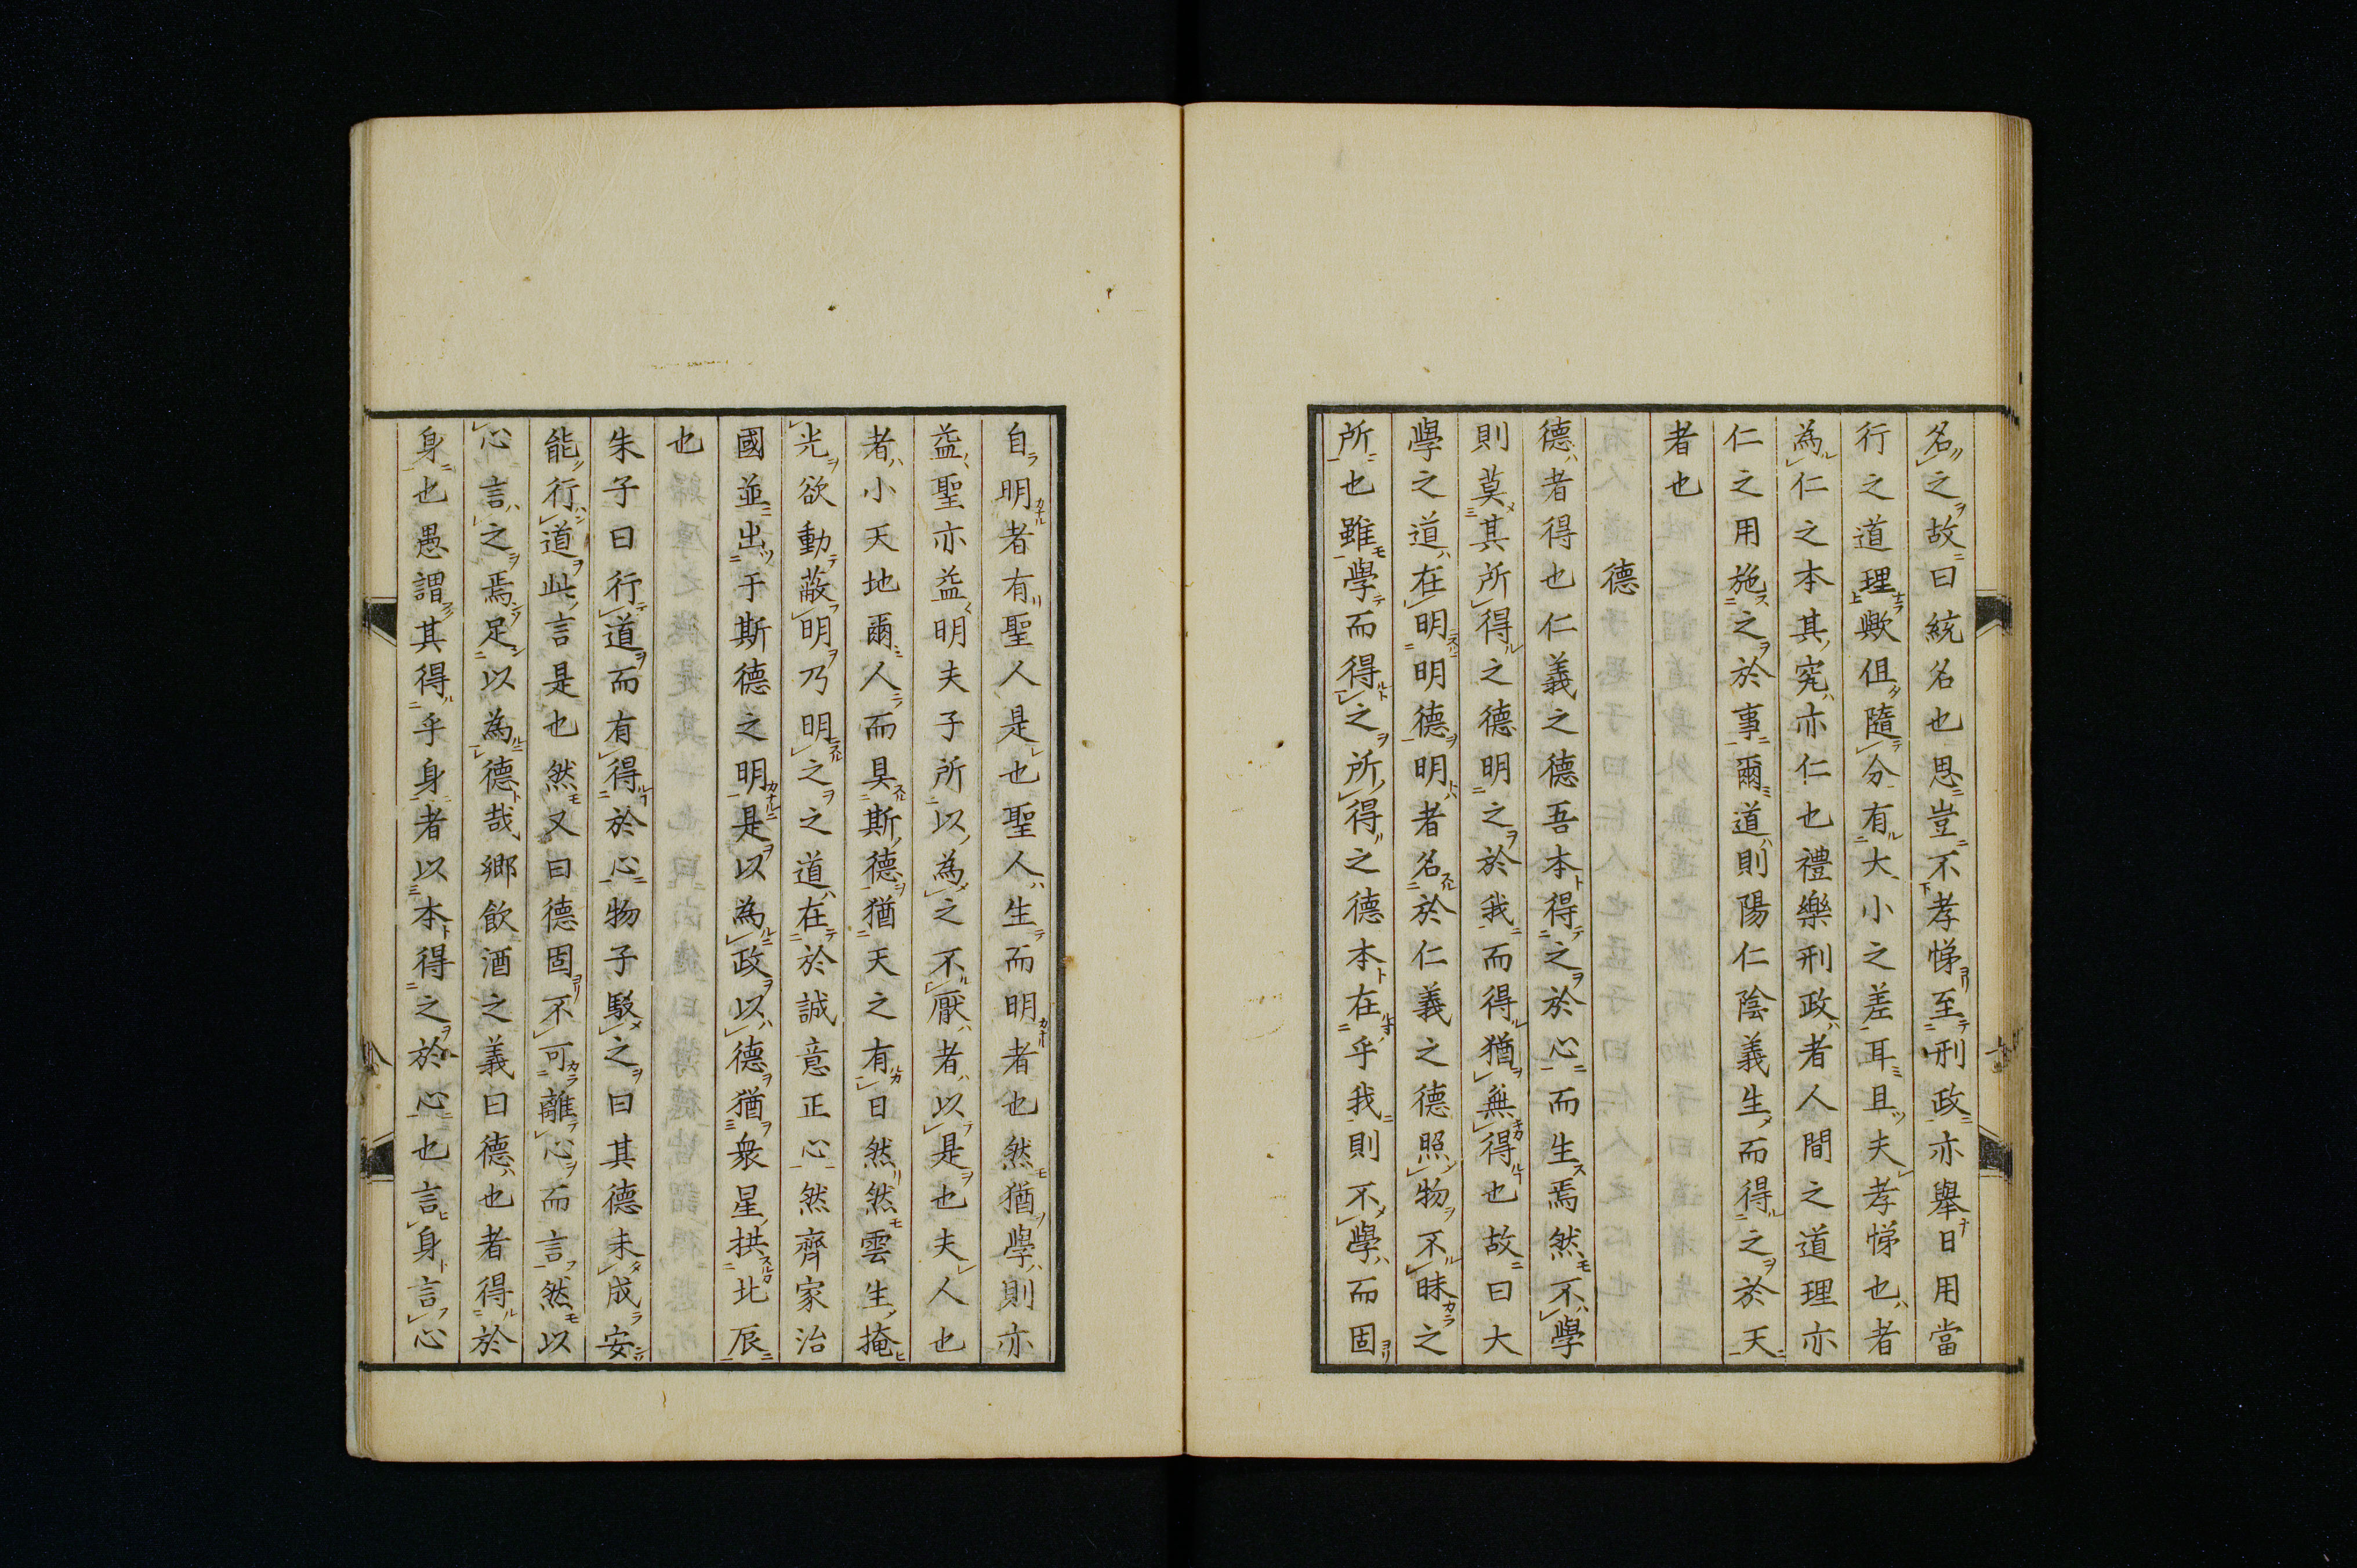 名之故曰統名也思豈不孝悌至刑政亦舉日用當
行之道理歟但隨分有大小之差耳且夫孝悌也者
為仁之本其究亦仁也禮樂刑政者人間之道理亦
仁之用施之於事爾道則陽仁陰義生而得之於天
者也
德
德者得也仁義之德吾本得之於心而生焉然不學
則莫其所得之德明之於我而得猶無得也故曰大
學之道在明明德明者名於仁義之德照物不昧之
所也雖學而得之所得之德本在乎我則不學而固
自明者有聖人是也聖人生而明者也然猶學則亦
益聖亦益明夫子所以為之不厭者以是也夫人也
者小天地爾人而具斯德猶天之有日然然雲生掩
光欲動蔽明乃明之之道在於誠意正心然齊家治
國並出于斯德之明是以為政以德猶衆星拱北辰
也
朱子曰行道而有得於心物子駁之曰其德未成安
能行道此言是也然又曰德固不可離心而言然以
心言之焉足以為德哉鄉飲酒之義曰德也者得於
身也愚謂其得乎身者以本得之於心也言身言心